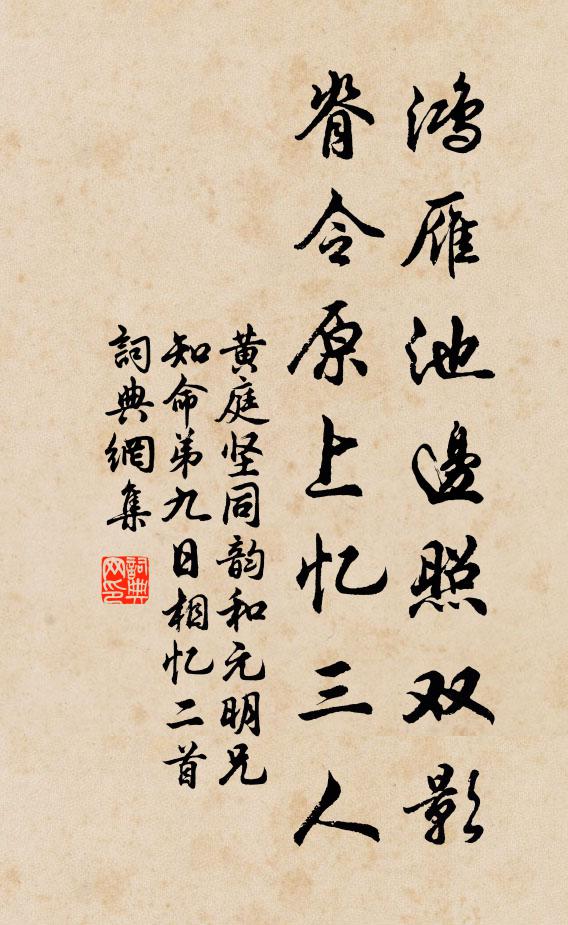 鸿雁池邊照双影
脊令原上忆三人
黄庭坚同韵和元明兄
知命弟九日相忆二首
詞典網集
詞典
网印